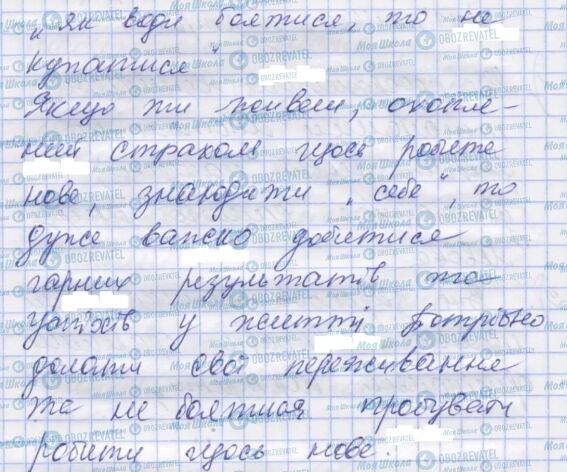 „ як води боятися, то не
купатися "
Якщо ти живеш, охопле-
ний страхом щось робити
нове, знаходити „ себе ", то
дуже важко добитися
гарних результатів та
успіхів у житті Потрібно
долати свої переживання
та не боятися пробувати
робити щось нове.